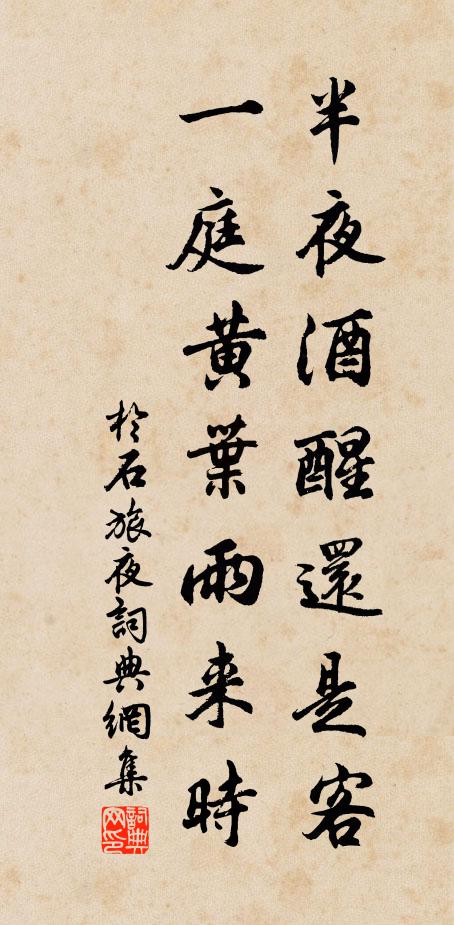 半夜酒醒還是客
一庭黃葉雨来時
於石旅夜詞典網集
詞典
网印